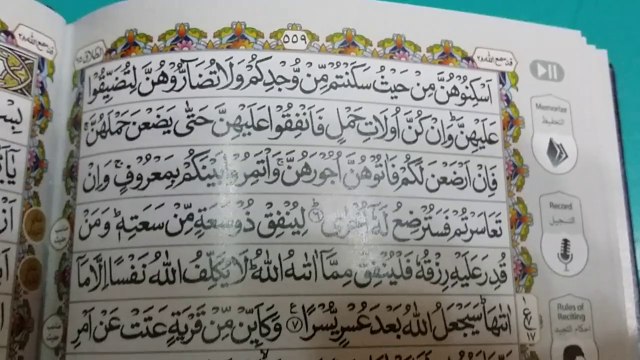 قد سمع الله ٢٨
٥٥٩
الطلاق ٦٥
اَسْكِنُوْهُنَّ مِنْ حَيْثُ سَكَنْتُمْ مِّنْ وُّجْدِكُمْ وَلَا تُضَآرُّوْهُنَّ لِتُضَيِّقُوْا
عَلَيْهِنَّ ؕ وَاِنْ كُنَّ اُولَاتِ حَمْلٍ فَاَنْفِقُوْا عَلَيْهِنَّ حَتّٰى يَضَعْنَ حَمْلَهُنَّ ۚ
فَاِنْ اَرْضَعْنَ لَكُمْ فَاٰتُوْهُنَّ اُجُوْرَهُنَّ ۚ وَاْتَمِرُوْا بَيْنَكُمْ بِمَعْرُوْفٍ ۚ وَاِنْ
تَعَاسَرْتُمْ فَسَتُرْضِعُ لَهٗۤ اُخْرٰى ؕ‏﴿۶﴾ لِيُنْفِقْ ذُوْ سَعَةٍ مِّنْ سَعَتِهٖ ؕ وَمَنْ
قُدِرَ عَلَيْهِ رِزْقُهٗ فَلْيُنْفِقْ مِمَّاۤ اٰتٰىهُ اللّٰهُ ؕ لَا يُكَلِّفُ اللّٰهُ نَفْسًا اِلَّا مَاۤ
اٰتٰىهَا ؕ سَيَجْعَلُ اللّٰهُ بَعْدَ عُسْرٍ يُّسْرًا ﴿۷﴾ وَكَاَيِّنْ مِّنْ قَرْيَةٍ عَتَتْ عَنْ اَمْرِ
ع
١٧
Memorize
التحفيظ
Record
التسجيل
Rules of
Reciting
احكام التجويد